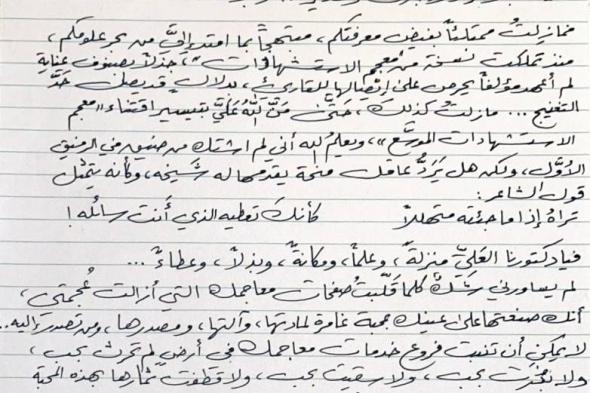 فمازلتُ ممتلئاً بفيض معرفتكم، مبتهجاً بما امتد إليَّ من بحر علومكم،
منذ تملكت نسخة من "معجم الاستشهادات"، جذلاً بصنوف عناية
لم أعهد مؤلفاً يحرص على إيصالها للقارئ، بدلال قد يصل حَدَّ
التغنيج... مازلت كذلك، حتّى مَنَّ اللهُ عَلَيَّ بتيسير اقتناء "معجم
الاستشهادات الموسَّع"، ويعلمُ الله أني لم أشتك من ضيق في
الأوَّل، ولكن هل يَرُدُّ عاقل منحة يقدمها له شَيخه، وكأنه يتمثل
قول الشاعر:
تراهُ إذا ما جئته متهللاً كأنك تعطيه الذي أنت سائله!
فيا دكتورنا العَليَّ منزلةً، وعلماً، ومكانةً، وبذلاً، وعطاءً...
لم يساورني شَكٌّ كلما قلَّبتُ صفحات معاجمك التي أزالت عُجمتي،
أنك صنعتها على عينيك بمحبة غامرة لمادتها، وآلتها، ومصدرها، ومن تصدرت إليه..
لا يمكن أن تنبت فروع خدمات معاجمك في أرض لم تحرث بحب،
ولا بذرت بحب، ولا سقيت بحب، ولا قطفت ثمارها بهذه المحبة